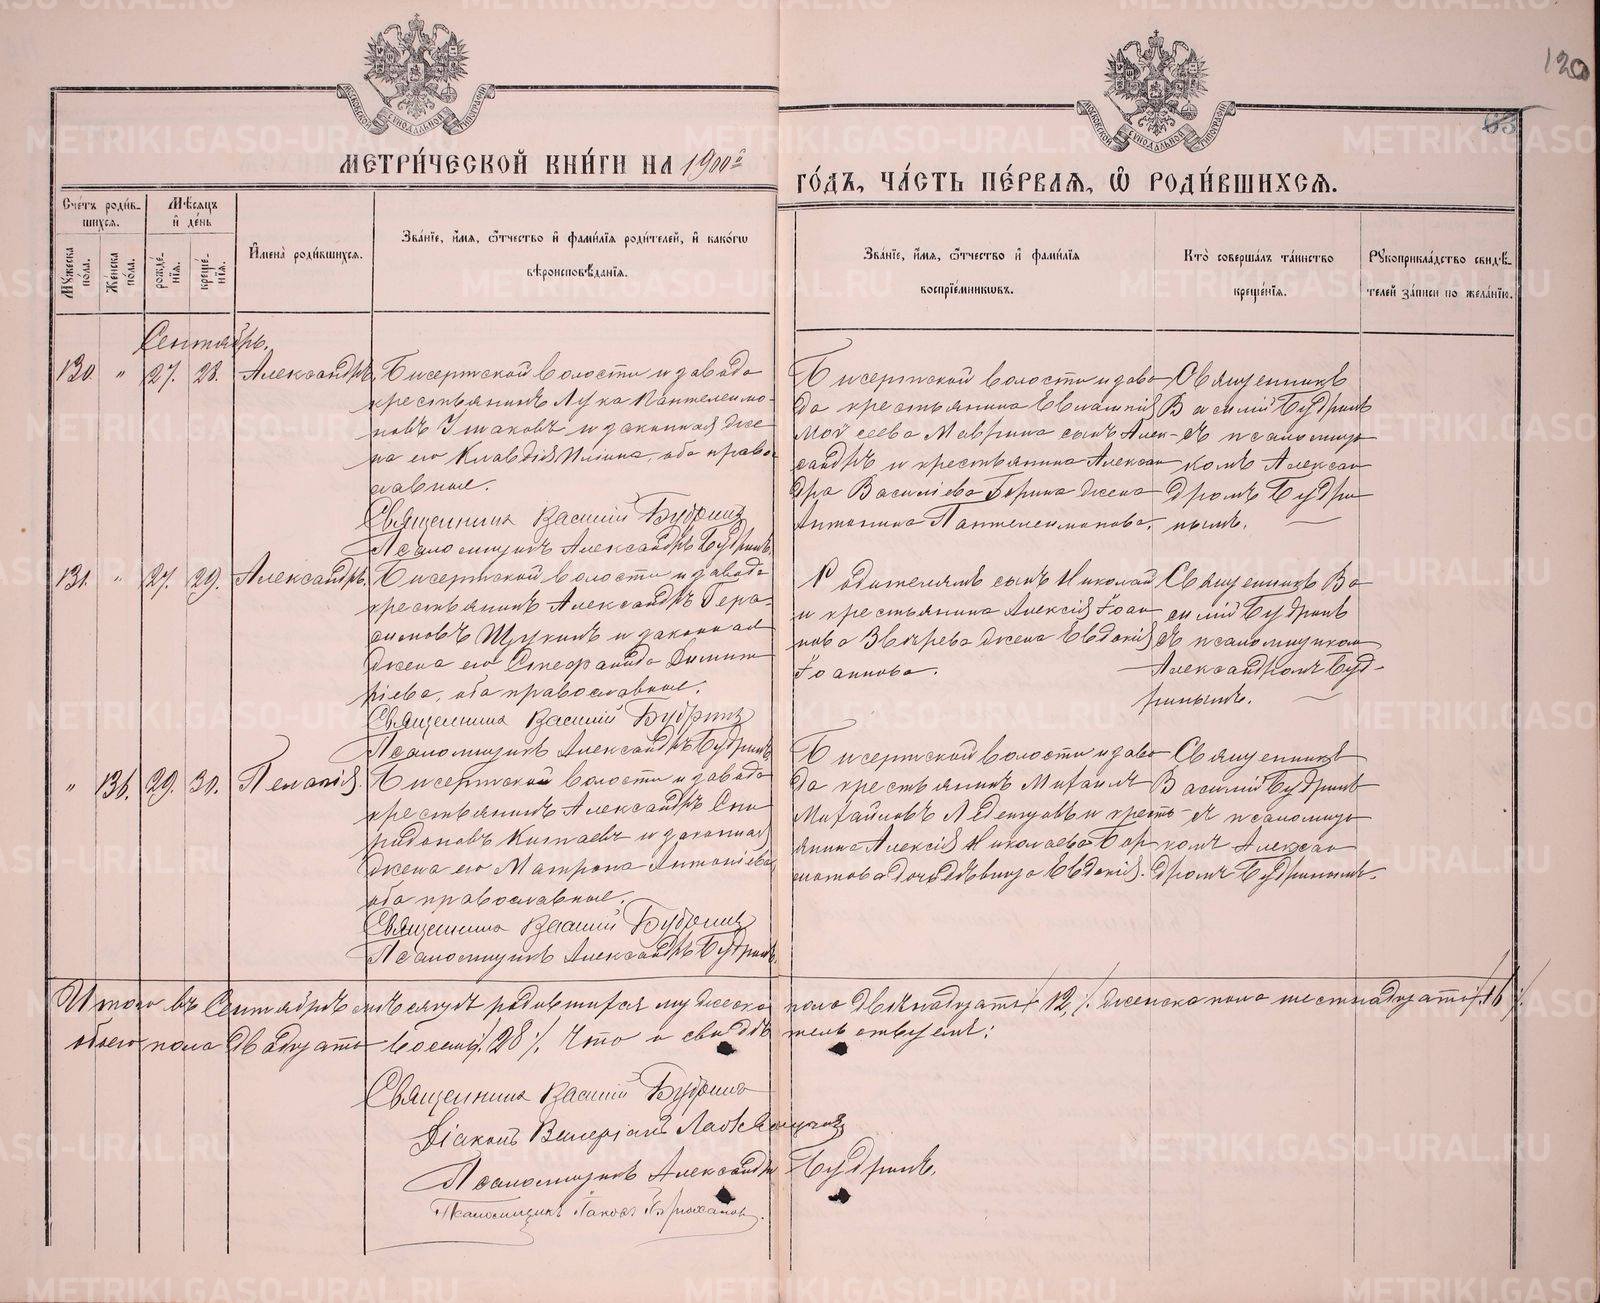 120
63
МЕТРИ́ЧЕСКОЙ КНИ́ГИ НА 1900й
ГО́ДЪ, ЧА́СТЬ ПЕ́РВАѦ, Ѽ РОДИ́ВШИХСѦ.
Сче́тъ роди́в-
шихся.
Мѣ́сяцъ
и҆ де́нь
Мꙋ́жеска
по́ла.
Же́нска
по́ла.
рожде́-
нїя.
креще́-
нїя.
И҆мена̀ роди́вшихся.
Зва́нїе, и҆́мя, ѻ҆́тчество и҆ фами́лїя роди́телей, и҆ како́гѡ
вѣроисповѣ́данїя.
Зва́нїе, и҆́мя, ѻ҆́тчество и҆ фами́лїя
воспрїе́мникѡвъ.
Кто̀ соверша́лъ та́инство
креще́нїя.
Рꙋкоприкла́дство свидѣ́-
телей за́писи по жела́нїю.
Сентябрь.
130. " 27. 28. Александръ.
Бисертской волости и завода
крестьянинъ Лука Пантелеимо-
новъ Ушаковъ и законная же
на его Клавдія Ильина, оба право-
славные.
Священникъ Василій Будринъ
Псаломщикъ Александръ Будринъ.
Бисертской волости и заво
да крестьянина Евлампія
Моисеева Маврина сынъ Алек-
сандръ и крестьянина Алексан
дра Василіева Горина жена
Антонина Пантелеимонова.
Священникъ
Василій Будринъ
съ псаломщи
комъ Алексан
дромъ Будри
нымъ.
131. " 27. 29. Александръ.
Бисертской волости и завода
крестьянинъ Александръ Гера-
симовъ Щукинъ и законная
жена его Стефанида Димит
ріева, оба православные.
Священникъ Василій Будринъ
Псаломщикъ Александръ Будринъ
Родителямъ сынъ Николай
и крестьянина Алексія Іоан
нова Звѣрева жена Евдокія
Іоаннова.
Священникъ Ва
силій Будринъ
съ псаломщикомъ
Александромъ Буд-
ринымъ.
" 136. 29. 30. Пелагія.
Бисертской волости и завода
крестьянинъ Александръ Спи
ридоновъ Китаевъ и законная
жена его Матрона Антоніева,
оба православные.
Священникъ Василій Будринъ
Псаломщикъ Александръ Будринъ.
Бисертской волости и заво
да крестьянинъ Михаилъ
Михайловъ Леденцовъ и кресть-
янина Алексія Николаева Бор
мотова дочь дѣвица Евдокія.
Священникъ
Василій Будринъ
съ псаломщи
комъ Алексан
дромъ Будринымъ.
Итого въ Сентябрѣ мѣсяцѣ родившихся мужеска пола двѣнадцать /12/. женска пола шестнадцать /16/.
обоего пола двадцать восемь /28/. Что и свидѣтельствуемъ:
Священникъ Василій Будринъ
Діаконъ Валеріанъ
Псаломщикъ Александръ Будринъ.
Псаломщикъ Іаковъ
METRIKI.GASO-URAL.RU